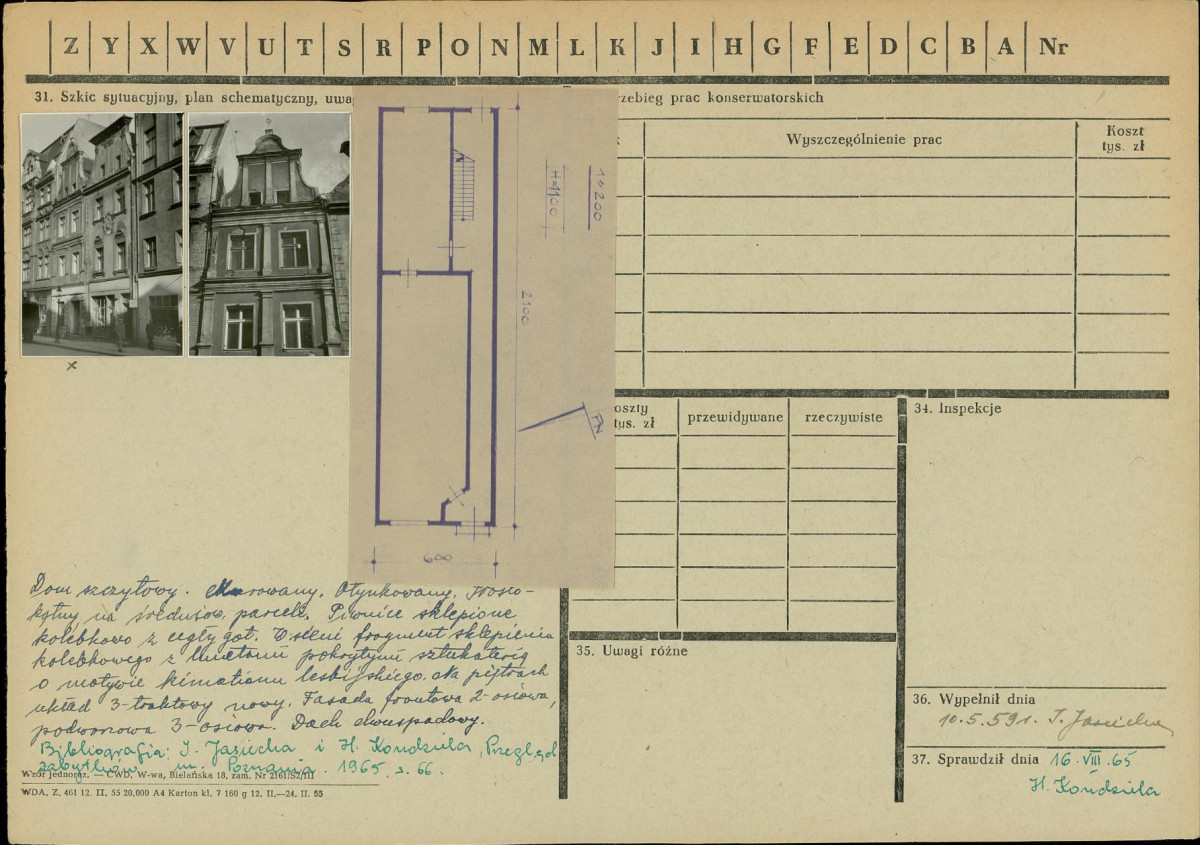 Z Y X W V U T S R P O N M L K J I H G F E D C B A Nr
31. Szkic sytuacyjny, plan schematyczny, uwa
rzebieg prac konserwatorskich
Wyszczególnienie prac
Koszt
tys. zł
1:200
H=1100
2100
600
oszty
tys. zł
przewidywane
rzeczywiste
34. Inspekcje
Dom szczytowy. Murowany. Otynkowany. Prosto-
kątny na średniow. parceli. Piwnice sklepione
kolebkowo z cegły got. W sieni fragment sklepienia
kolebkowego z lunetami pokrytymi sztukaterią
o motywie kimationu lesbijskiego. Na piętrach
układ 3-traktowy nowy. Fasada frontowa 2-osiowa,
podworzowa 3-osiowa. Dach dwuspadowy.
Bibliografia: I. Jasiecka i H. Kondziela, Przegląd
zabytków m. Poznania. 1965, s. 66.
Wzór jednoraz. — CWD. W-wa, Bielańska 18, zam. Nr 2161/Sz/III
WDA. Z. 461 12. II. 55 20,000 A4 Karton kl. 7 160 g 12. II.—24. II. 55
35. Uwagi różne
36. Wypełnił dnia
10.5.59r. I. Jasiecka
37. Sprawdził dnia 16.VIII.65
H. Kondziela